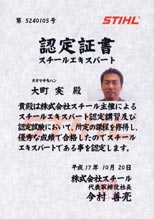 第 5240105号
STIHL
認定証書
スチールエキスパート
オオマチモハン
大町 実 殿
貴殿は株式会社スチール主催による
スチールエキスパート認定講習及び
認定試験において、所定の課程を修得し
優秀な成績で合格したのでスチール
エキスパートである事を認定します。
平成17年 10月 20日
株式会社スチール
代表取締役社長
今村 善亮